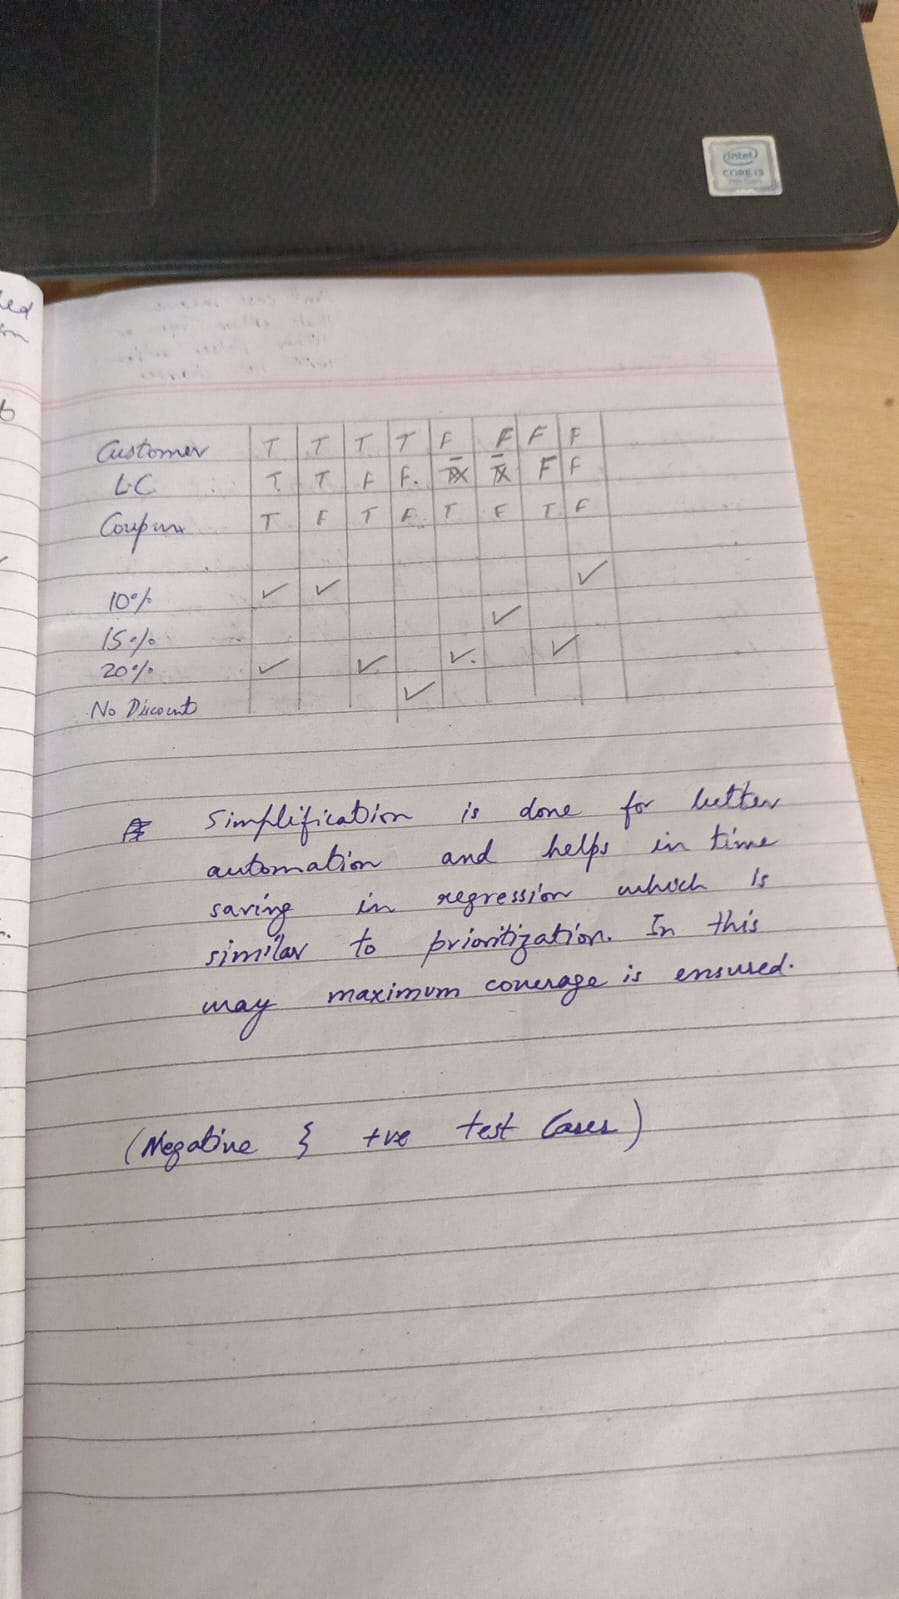 intel
CORE i3
Customer T T T T F F F F
L.C T. T F F. F F
Coupun T F T F T F T F
10% ✓ ✓ ✓
15% ✓
20% ✓ ✓ ✓. ✓
No Discount ✓
Simplification is done for better
automation and helps in time
saving in regression which is
similar to prioritization. In this
way maximum coverage is ensured.
(Negative & +ve test Cases)